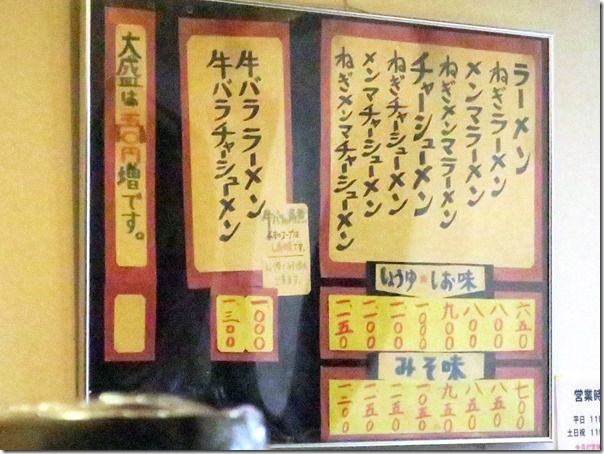 ラーメン
ねぎラーメン
メンマラーメン
ねぎメンマラーメン
チャーシューメン
ねぎチャーシューメン
メンマチャーシューメン
ねぎメンマチャーシューメン
しょうゆ・しお味
六五〇
八〇〇
八〇〇
九〇〇
一〇〇〇
一一〇〇
一一〇〇
一一五〇
みそ味
七〇〇
八五〇
八五〇
九五〇
一〇五〇
一一五〇
一一五〇
一二〇〇
牛バラ ラーメン
牛バラチャーシューメン
しお味です。
一〇〇〇
一三〇〇
大盛は五〇円増です。
営業時
平日 11
土日祝 11